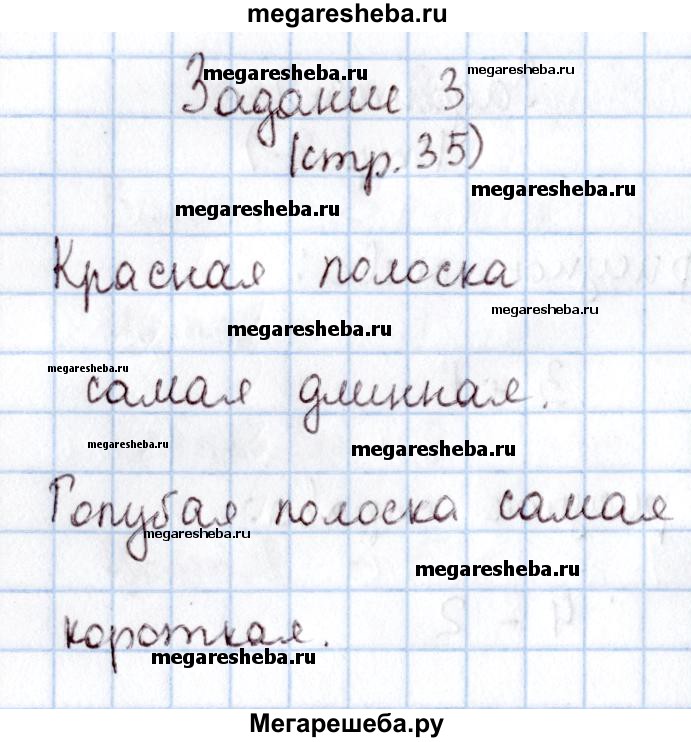 megaresheba.ru
megaresheba.ru megaresheba.ru
Задание 3
(стр. 35)
megaresheba.ru
megaresheba.ru
Красная полоска
megaresheba.ru
megaresheba.ru
megaresheba.ru
самая длинная.
megaresheba.ru
megaresheba.ru
Голубая полоска самая
megaresheba.ru
megaresheba.ru
короткая.
megaresheba.ru
Мегарешеба.ру